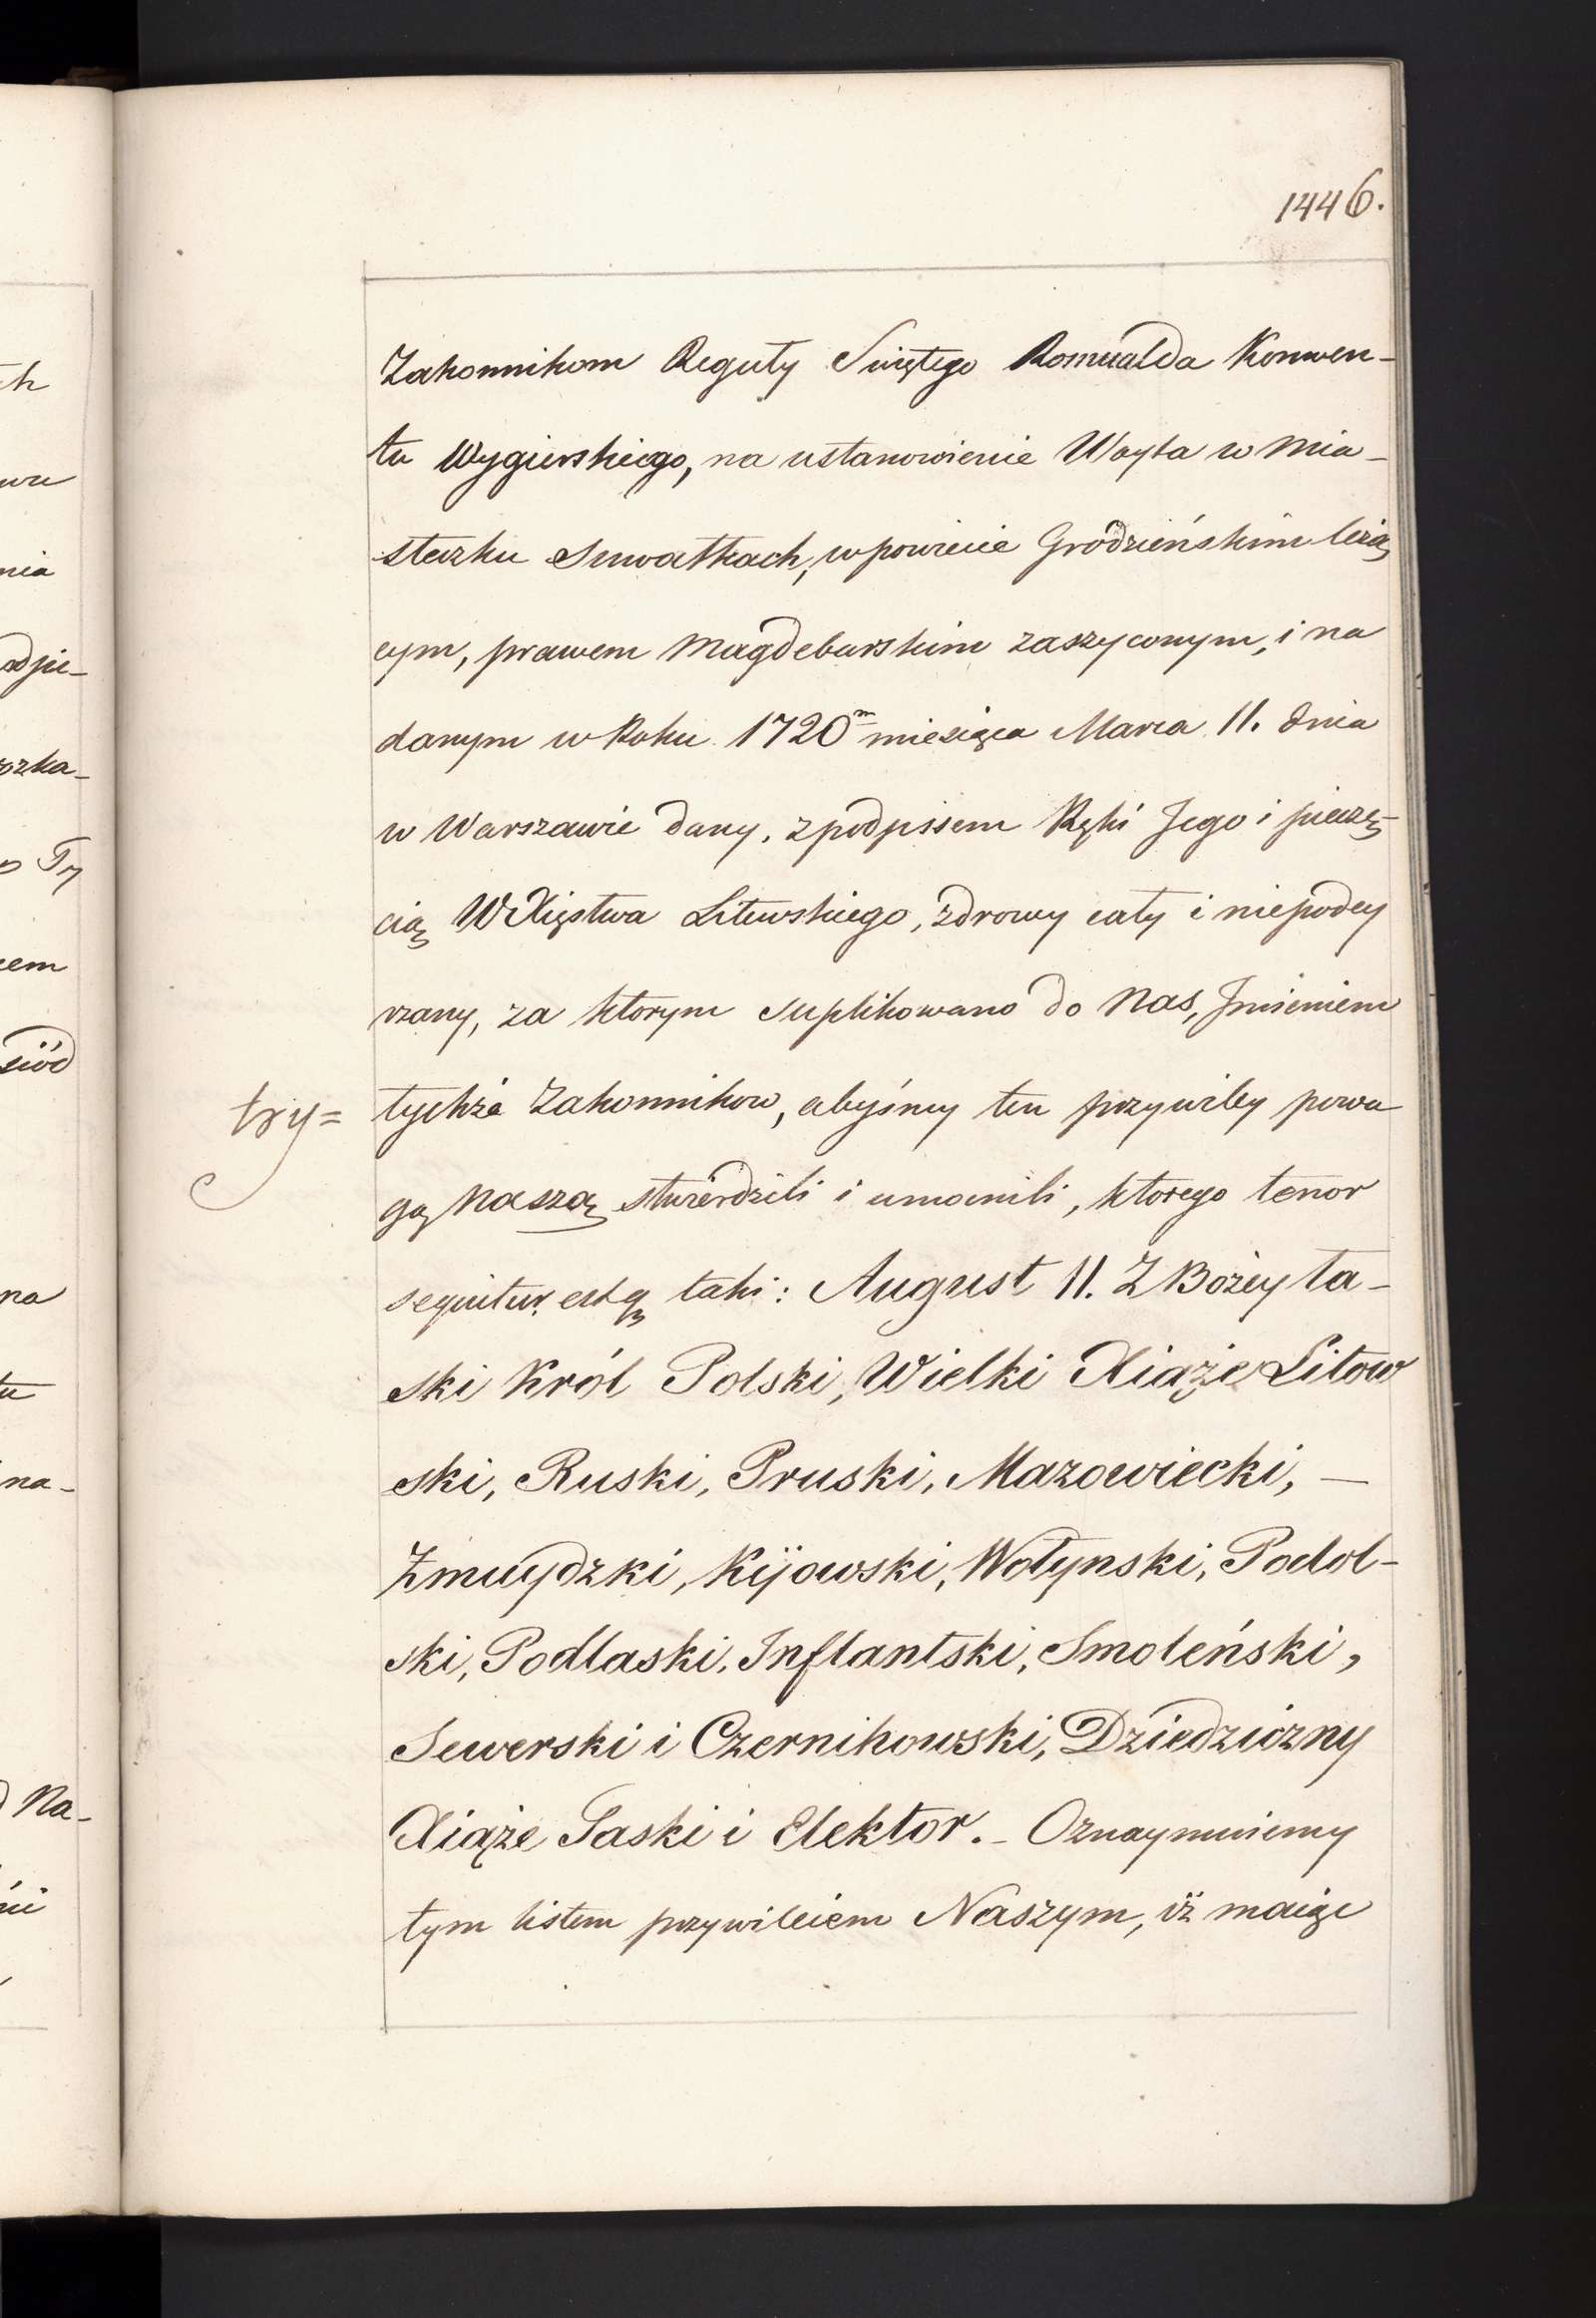 1446.
Zakonnikom Reguły Swiętego Romualda Konwen-
tu Wygierskiego, na ustanowienie Woyta w Mia-
steczku Suwałkach, w powiecie Grodzieńskim leżą
cym, prawem Magdeburskim zaszyconym, i na
danym w Roku 1720m miesiąca Marca 11. dnia
w Warszawie dany, z podpissem Ręki Jego i pieczę-
cią W Xięstwa Litewskiego, zdrowy cały i niepodey
rzany, za ktorym suplikowano do Nas, Jmieniem
try= tychże Zakonnikow, abyśmy ten przywiley powa
gą Naszą stwierdzili i umocnili, ktorego tenor
sequitur estq taki: August II. Z Bożey ła-
ski Król Polski, Wielki Xiąże Litow
ski, Ruski, Pruski, Mazowiecki, —
Żmuydzki, Kijowski, Wołynski, Podol-
ski, Podlaski, Inflantski, Smoleński,
Sewerski i Czernihowski, Dziedziczny
Xiąże Saski i Elektor. - Oznaymuiemy
tym listem przywileiem Naszym, iż maiąc